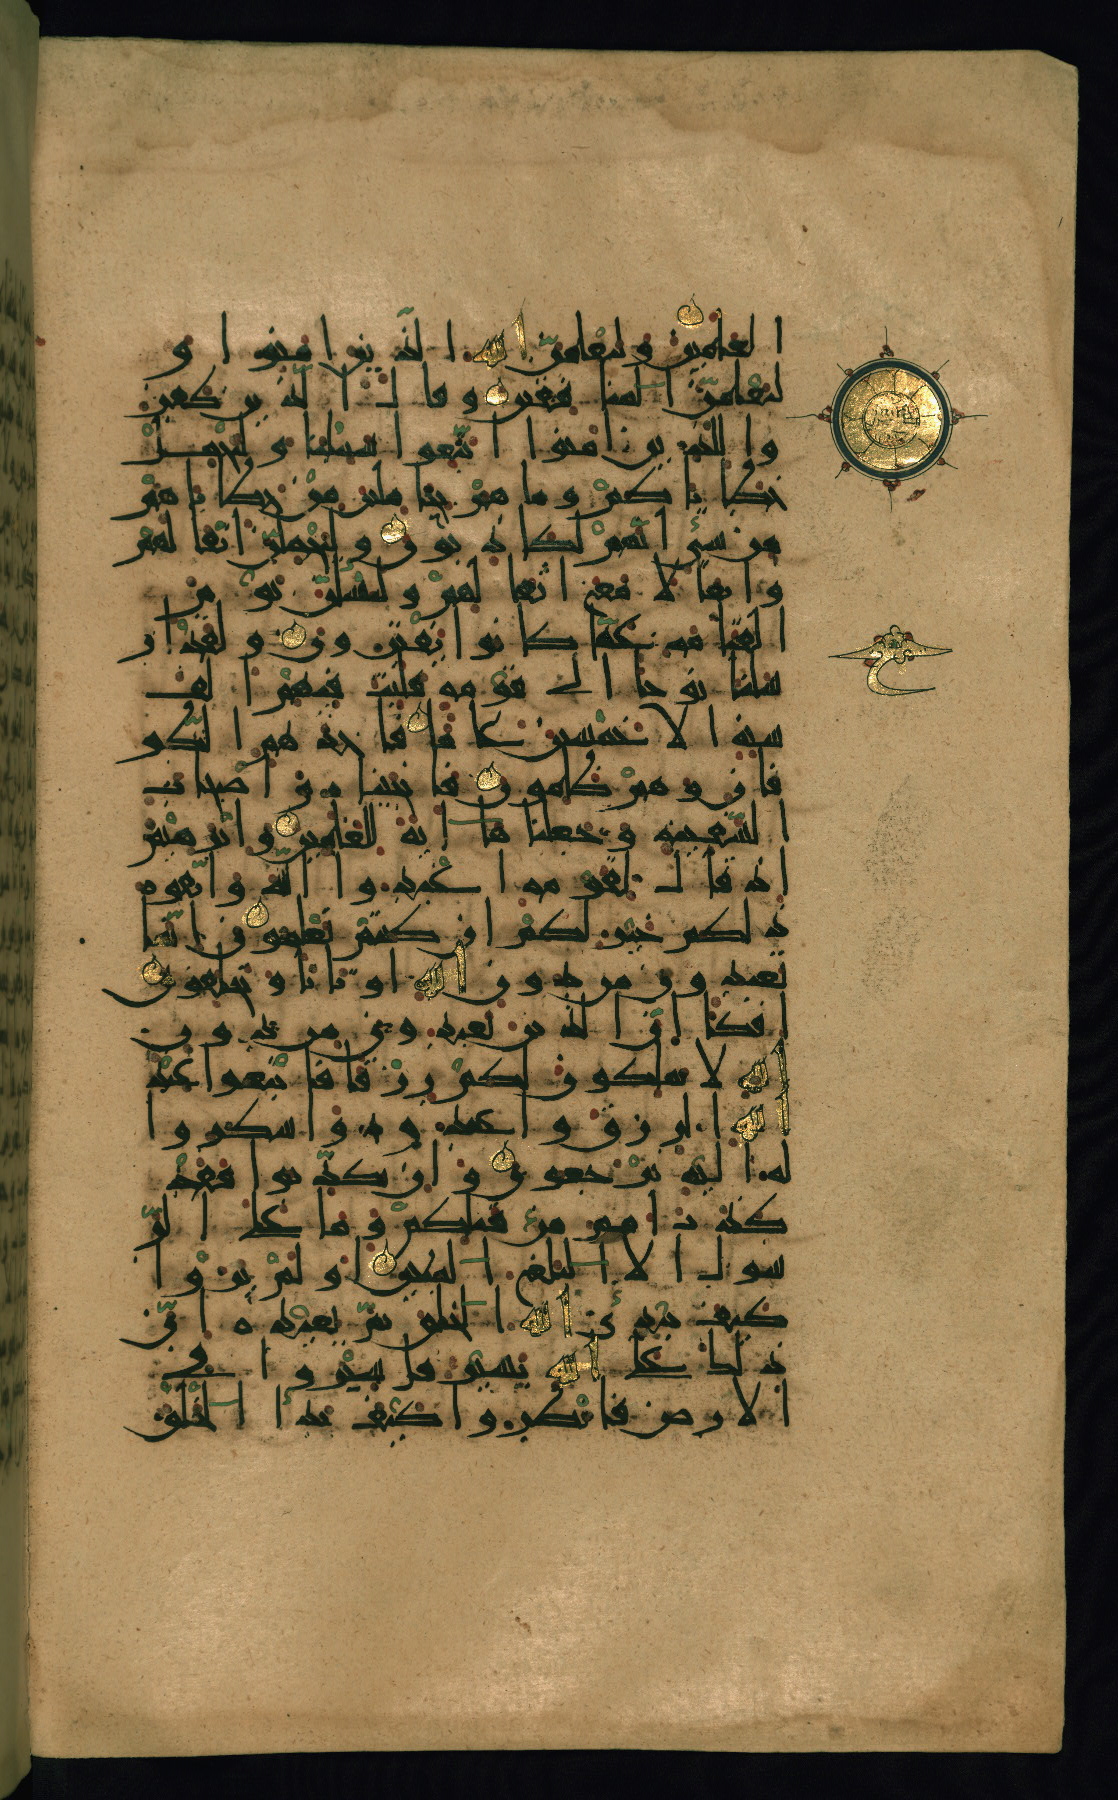 العلمين وليعلمن الله الذين امنوا و
ليعلمن المنفقين وقال الذين كفر
وا للذين امنوا اتبعوا سبيلنا ولنحمل
خطاياكم وما هم بحاملين من خطاياهم
من شيء انهم لكاذبون وليحملن اثقالهم
واثقالا مع اثقالهم وليسئلن يوم
القيامة عما كانوا يفترون ولقد ار
سلنا نوحا الى قومه فلبث فيهم الف
سنة الا خمسين عاما فاخذهم الطو
فان وهم ظالمون فانجيناه واصحاب
السفينة وجعلناها اية للعالمين وابرهيم
اذ قال لقومه اعبدوا الله واتقوه
ذلكم خير لكم ان كنتم تعلمون انما
تعبدون من دون الله اوثانا وتخلقون
افكا ان الذين تعبدون من دون
الله لا يملكون لكم رزقا فابتغوا عند
الله الرزق واعبدوه واشكروا
له اليه ترجعون وان تكذبوا فقد
كذب امم من قبلكم وما على الر
سول الا البلغ المبين اولم يروا
كيف يبدئ الله الخلق ثم يعيده ان
ذلك على الله يسير قل سيروا في
الارض فانظروا كيف بدا الخلق